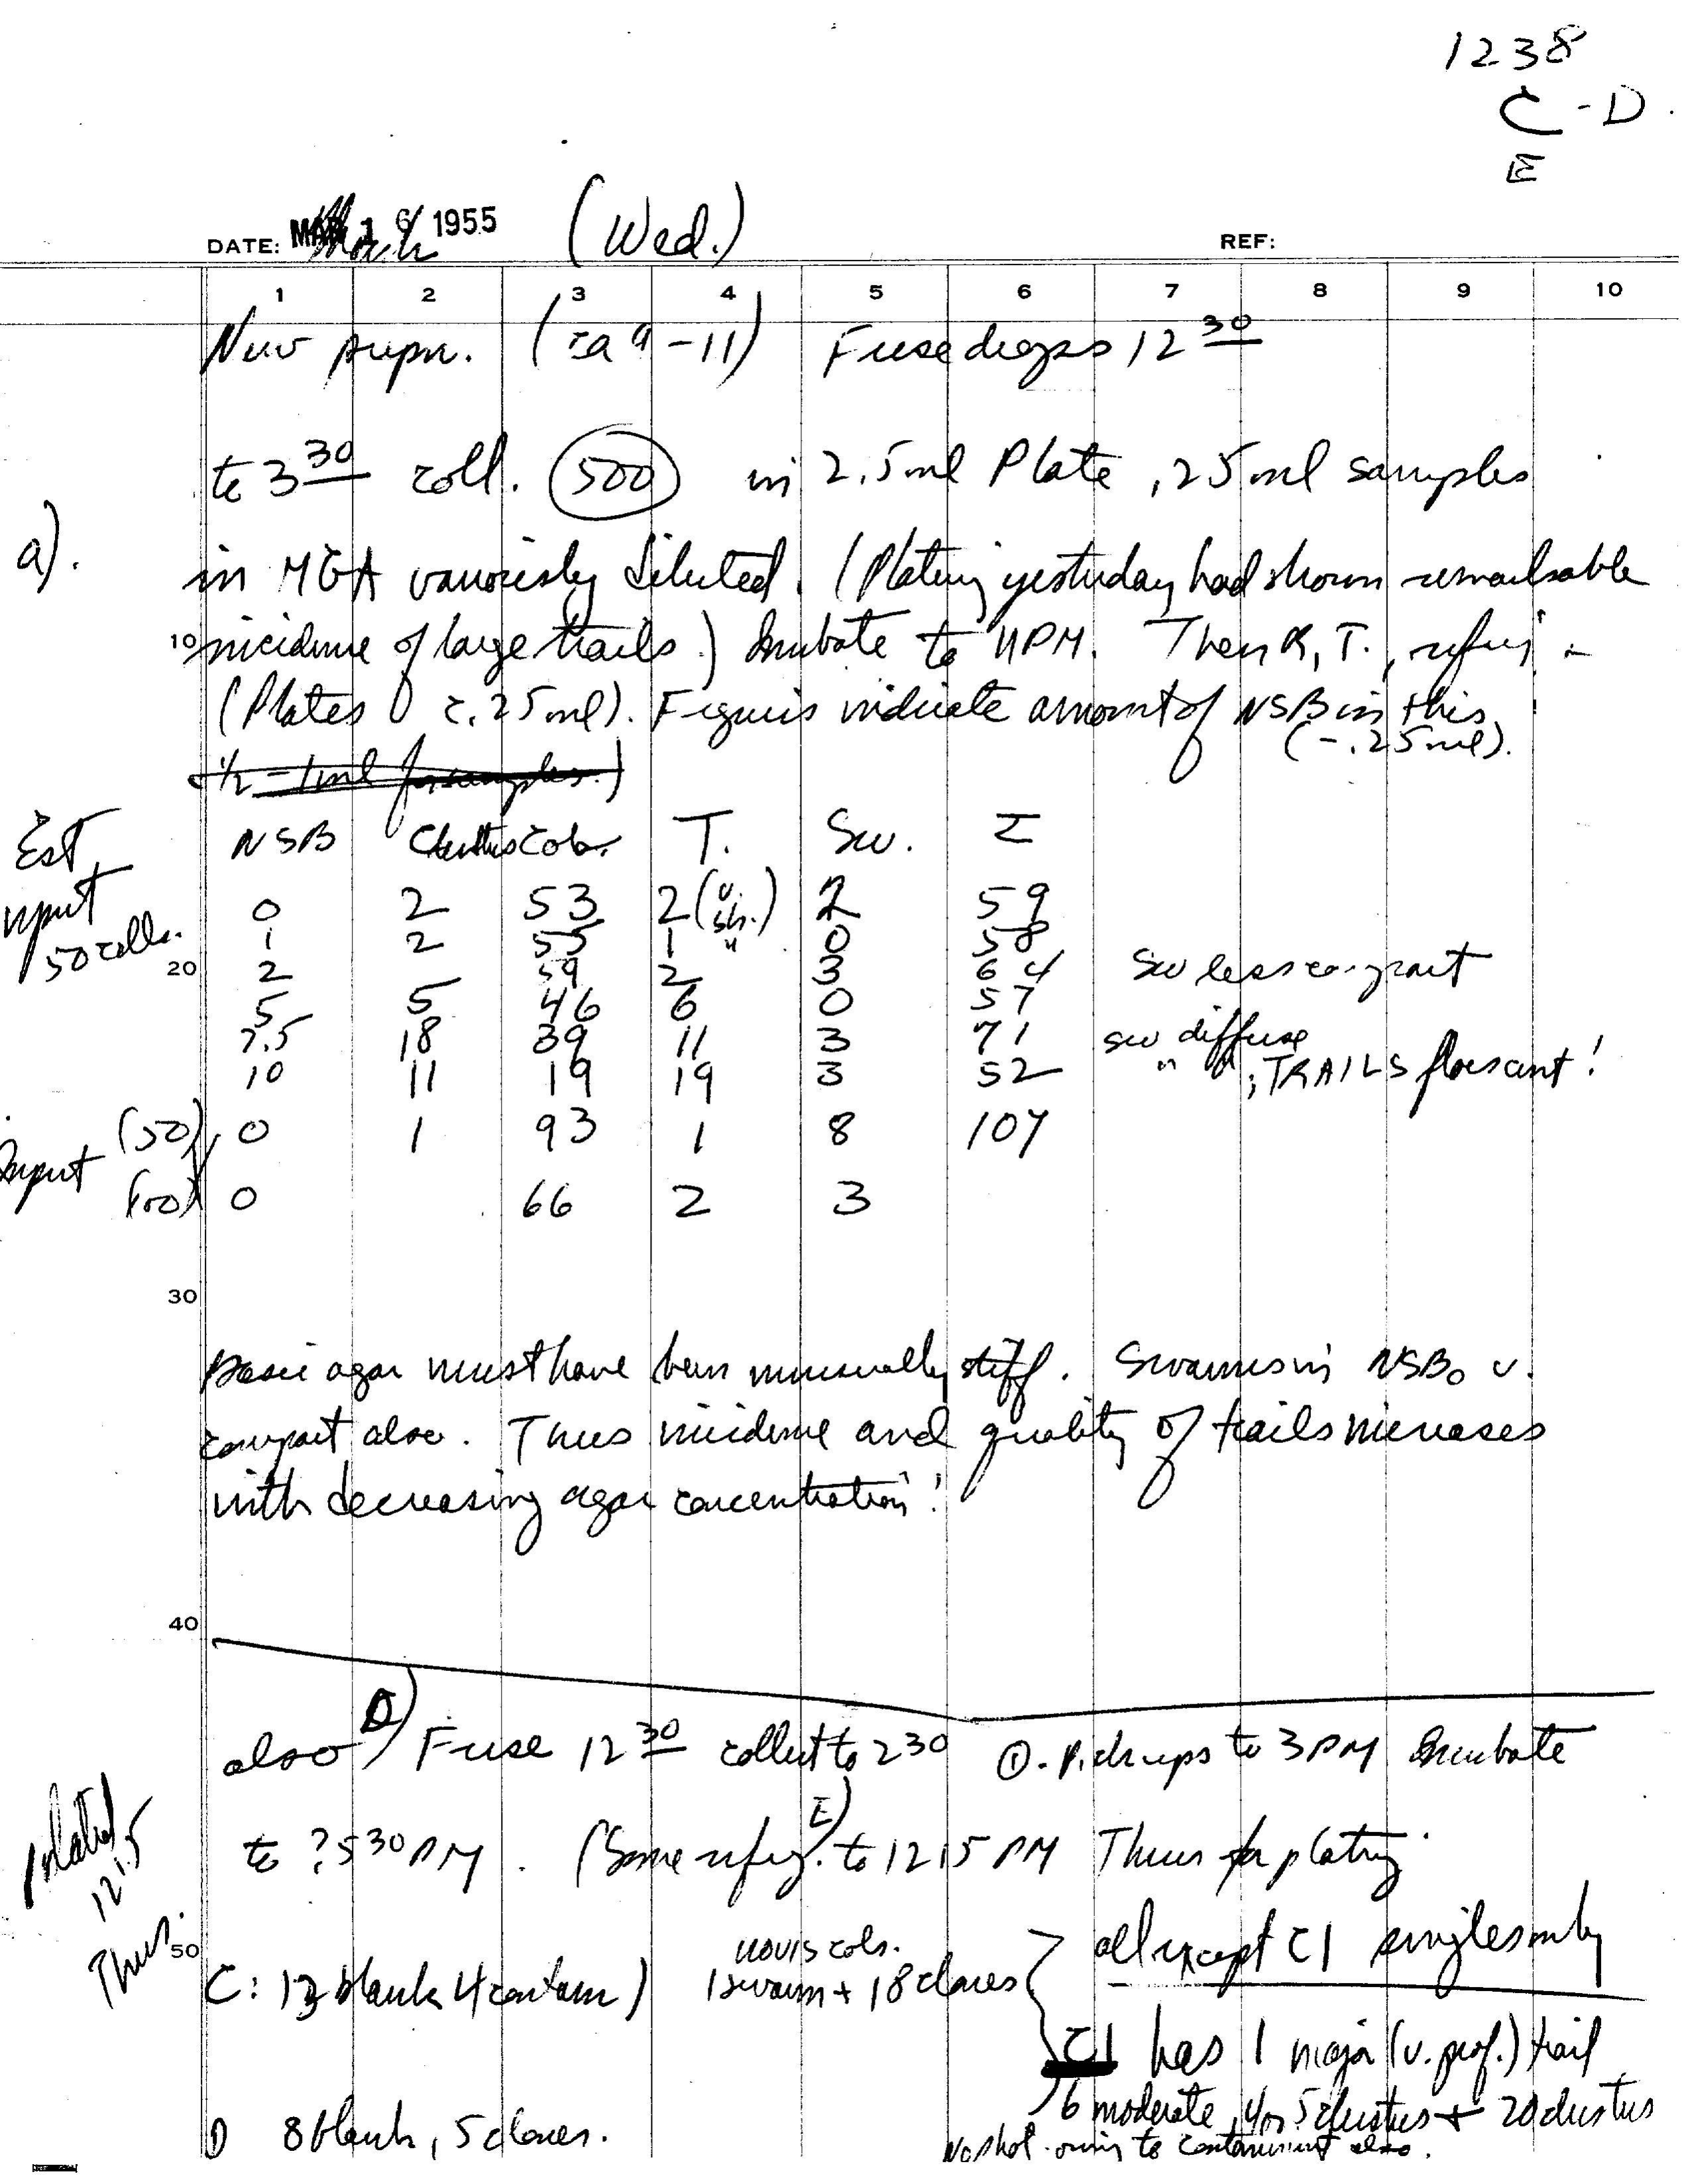 1238
C - D.
E
DATE: MAR 16 1955 (Wed.) REF:
1 2 3 4 5 6 7 8 9 10
New prepn. Fuse drops 12 30
to 3 30 coll. (500) in 2.5 ml Plate .25 ml samples
a). in MGA variously diluted. (Plating yesterday had shown remarkable
10 incidence of large trails.) Incubate to 11 PM. Then R.T., refrig
(Plates c. 25 ml). Figures indicate amount of NSB in this
(-.25 ml).
Est input 50 cells.
NSB Clusters Cols. T. Sw. Σ
0 2 53 2 (v. sh.) 2 59
1 2 55 1 " 0 58
20 2 5 59 2 3 64 Sw less compact
5 5 46 6 0 57
7.5 18 39 11 3 71 sw diffuse
10 11 19 19 3 52 " ; TRAILS florescent!
Input (50) 0 1 93 1 8 107
0 66 2 3
30
Basic agar must have been unusually stiff. Swarms in NSB0 v.
compact also. Thus incidence and quality of trails increases
with decreasing agar concentration!
40
also D) Fuse 12 30 collect to 2 30 ①. drops to 3 PM Incubate
to ? 5 30 PM. (Some refrig. E) to 12 15 PM Thurs for plating
plated 12:15 Thus.
50
C: 13 blank 4 contam) 1 swarm + 18 clones cols. all except C1 singles only
C1 has 1 major (v. prof.) trail
6 moderate, 4 or 5 clusters + 20 clusters
No shot owing to contaminant also.
D 8 blank, 5 clones.